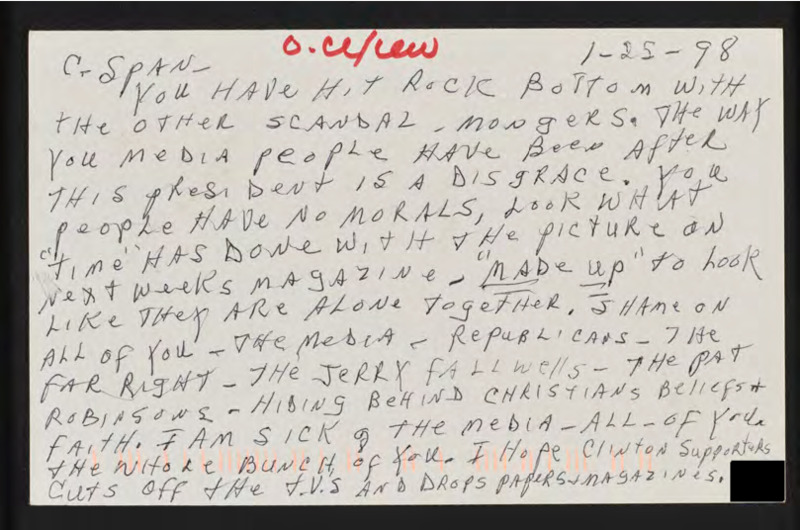 O.Ce/Lew
1-25-98
C-SPAN-
YOU HAVE HIT ROCK BOTTOM WITH
THE OTHER SCANDAL - MONGERS. THE WAY
YOU MEDIA PEOPLE HAVE BEEN AFTER
THIS PRESIDENT IS A DISGRACE. YOU
PEOPLE HAVE NO MORALS, LOOK WHAT
"TIME" HAS DONE WITH THE PICTURE ON
NEXT WEEKS MAGAZINE - "MADE UP" TO LOOK
LIKE THEY ARE ALONE TOGETHER. SHAME ON
ALL OF YOU - THE MEDIA - REPUBLICANS - THE
FAR RIGHT - THE JERRY FALLWELLS - THE PAT
ROBINSONS - HIDING BEHIND CHRISTIANS BELIEFS +
FAITH. I AM SICK OF THE MEDIA - ALL - OF YOU.
THE WHOLE BUNCH OF YOU. I HOPE CLINTON SUPPORTERS
CUTS OFF THE T.V.S AND DROPS PAPERS + MAGAZINES.